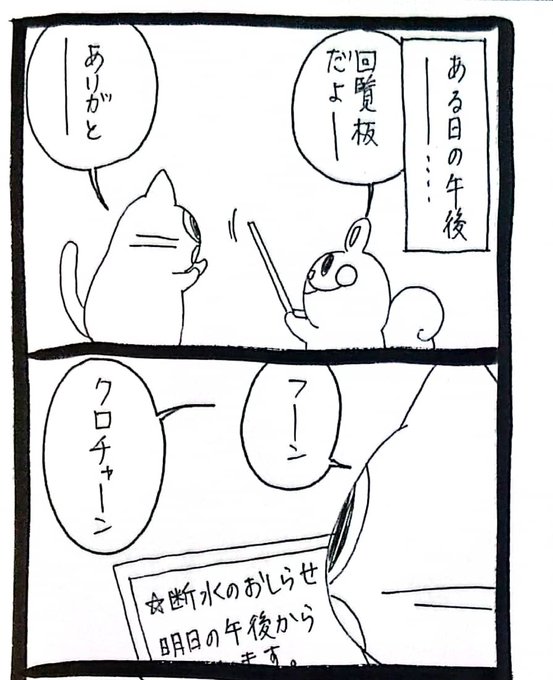 ある日の午後
ーー‥‥
回覧板
だよー
ありがと
ー
フーン
クロチャーン
☆断水のおしらせ
明日の午後から
ます。